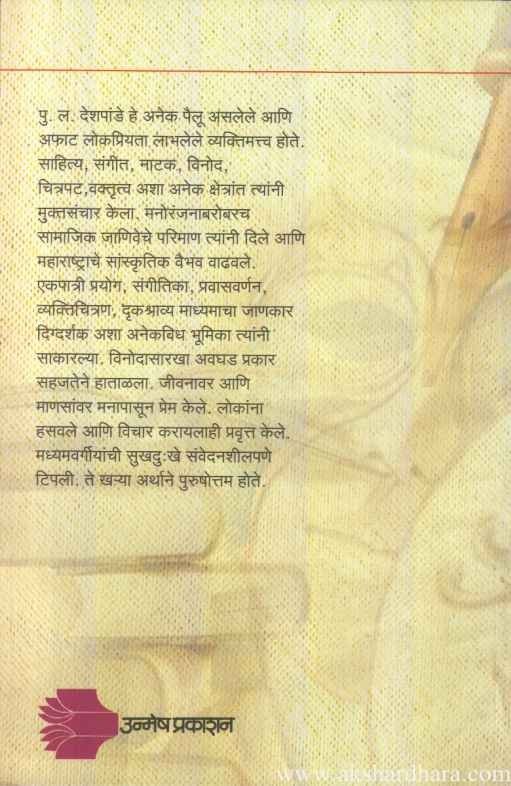 पु. ल. देशपांडे हे अनेक पैलू असलेले आणि
अफाट लोकप्रियता लाभलेले व्यक्तिमत्त्व होते.
साहित्य, संगीत, नाटक, विनोद,
चित्रपट,वक्तृत्व अशा अनेक क्षेत्रांत त्यांनी
मुक्तसंचार केला. मनोरंजनाबरोबरच
सामाजिक जाणिवेचे परिमाण त्यांनी दिले आणि
महाराष्ट्राचे सांस्कृतिक वैभव वाढवले.
एकपात्री प्रयोग, संगीतिका, प्रवासवर्णन,
व्यक्तिचित्रण, दृकश्राव्य माध्यमाचा जाणकार
दिग्दर्शक अशा अनेकविध भूमिका त्यांनी
साकारल्या. विनोदासारखा अवघड प्रकार
सहजतेने हाताळला. जीवनावर आणि
माणसांवर मनापासून प्रेम केले. लोकांना
हसवले आणि विचार करायलाही प्रवृत्त केले.
मध्यमवर्गीयांची सुखदुःखे संवेदनशीलपणे
टिपली. ते खऱ्या अर्थाने पुरुषोत्तम होते.
उन्मेष प्रकाशन
www.akshardhara.com